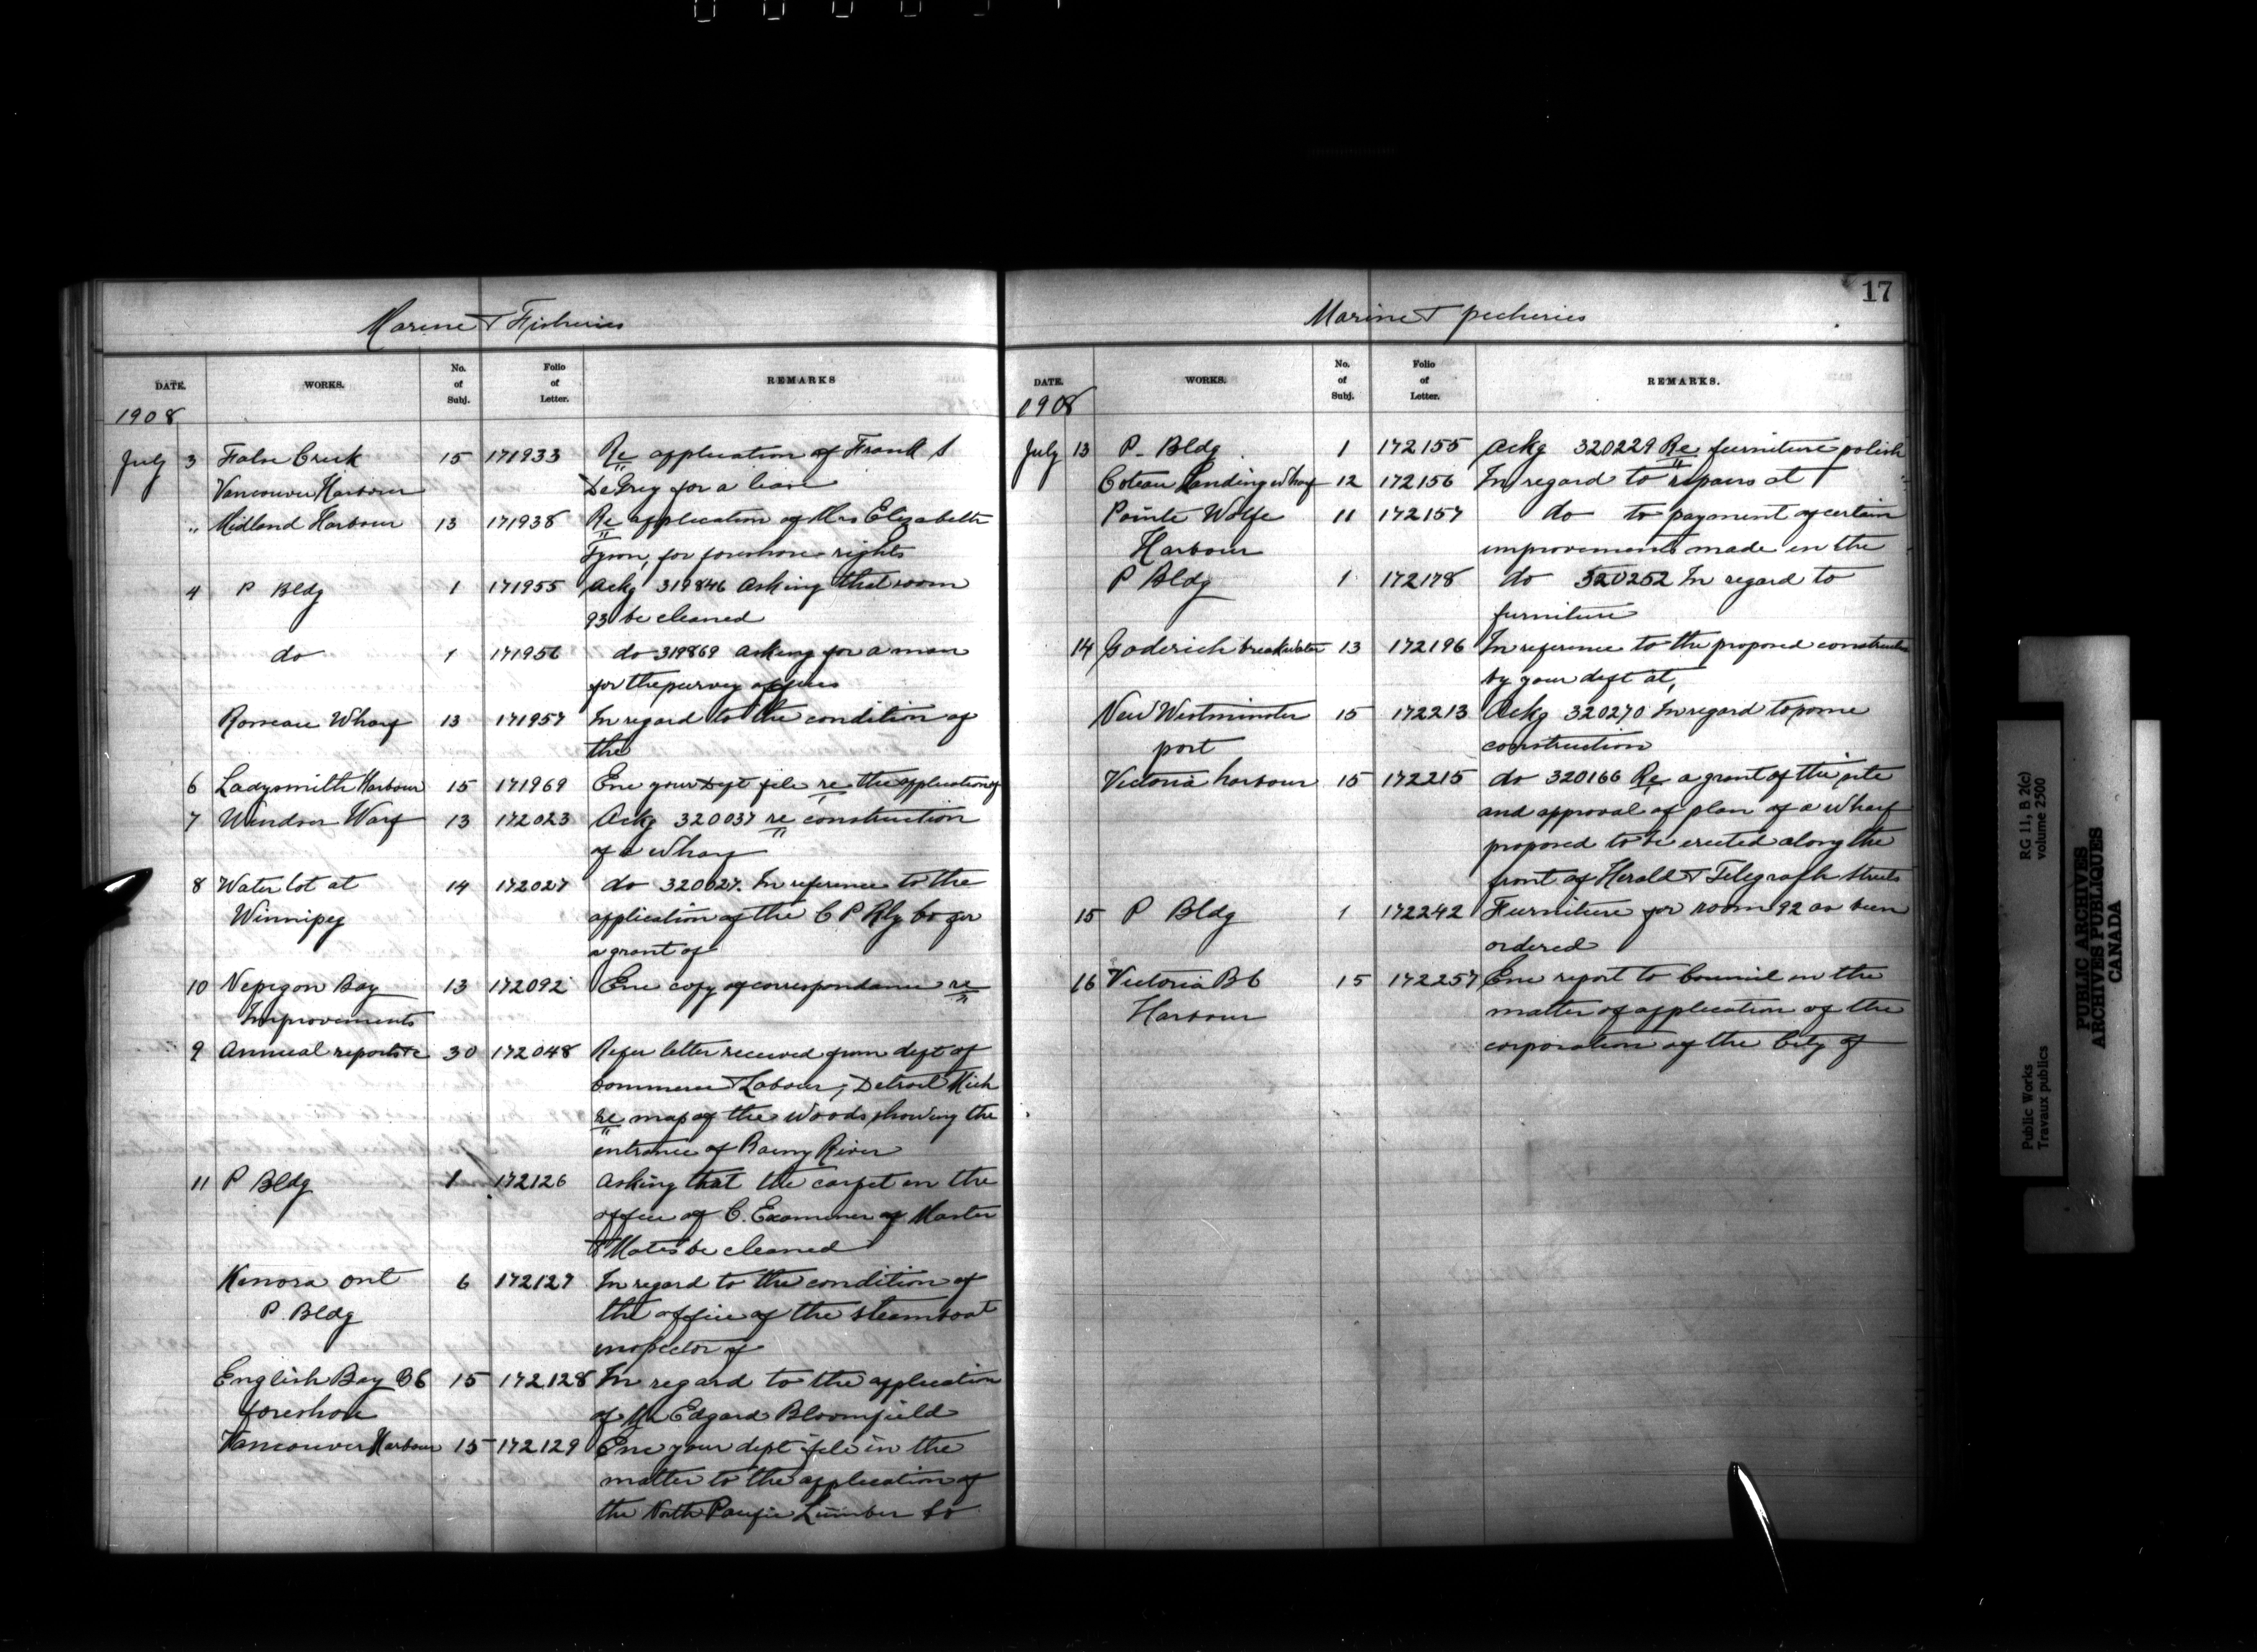 Marine & Fisheries
DATE. WORKS. No. of Subj. Folio of Letter. REMARKS
1908
July 3 False Creek 15 171933 Re application of Frank S
Vancouver Harbour DeGrey for a lease
" Midland Harbour 13 171938 Re application of Mrs Elizabeth
for foreshore rights
4 P Bldg 1 171955 Ackg 319846 Asking that room
93 be cleaned
do 1 171956 do 319869 Asking for a man
for the survey offices
Rosseau Wharf 13 171957 In regard to the condition of
the
6 Ladysmith Harbour 15 171969 Enc your Dept file re the application of
7 Windsor Warf 13 172023 Ackg 320037 re construction
of a Wharf
8 Water lot at 14 172027 do 320027. In reference to the
Winnipeg application of the C P Rly Co for
a grant of
10 Nepigon Bay 13 172092 Enc copy of correspondance re
Improvements
9 Annual reports &c 30 172048 Refer letter received from dept of
Commerce & Labour, Detroit Mich
re map of the Woods showing the
entrance of Rainy River
11 P Bldg 1 172126 Asking that the carpet in the
office of C. Examiner of Master
& Mates be cleaned
Kenora Ont 6 172127 In regard to the condition of
P. Bldg the office of the steamboat
inspector of
English Bay BC 15 172128 In regard to the application
foreshore of Mr Edgard Bloomfield
Vancouver Harbour 15 172129 Enc your dept file in the
matter to the application of
the North Pacific Lumber Co
17
Marine & pecheries
DATE. WORKS. No. of Subj. Folio of Letter. REMARKS.
1908
July 13 P. Bldg 1 172155 Ackg 320229 Re furniture polish
Coteau Landing Wharf 12 172156 In regard to repairs at
Pointe Wolfe 11 172157 do to payment of certain
Harbour improvements made in the
P Bldg 1 172178 do 320252 In regard to
furniture
14 Goderich breakwater 13 172196 In reference to the proposed construction
by your dept at,
New Westminster 15 172213 Ackg 320270 In regard to some
port construction
Victoria harbour 15 172215 do 320166 Re a grant of the site
and approval of plan of a Wharf
proposed to be erected along the
front of Herald & Telegraph Streets
15 P Bldg 1 172242 Furniture for room 92 as been
ordered
16 Victoria BC 15 172257 Enc report to Council in the
Harbour matter of application of the
corporation of the City of
Public Works
Travaux publics
RG 11, B 2(c)
volume 2500
PUBLIC ARCHIVES
ARCHIVES PUBLIQUES
CANADA